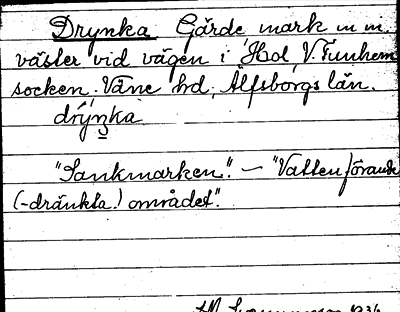 Drynka Gärde mark m m.
väster vid vägen i Hol, V. Tunhem
socken. Väne hd, Älfsborgs län.
drýnka
"Sankmarken". — "Vattenförande
(-dränkta) området".
1936